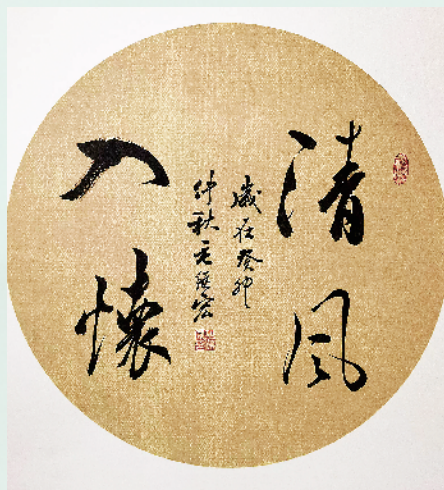 清風
入懷
歲在癸卯
仲秋毛